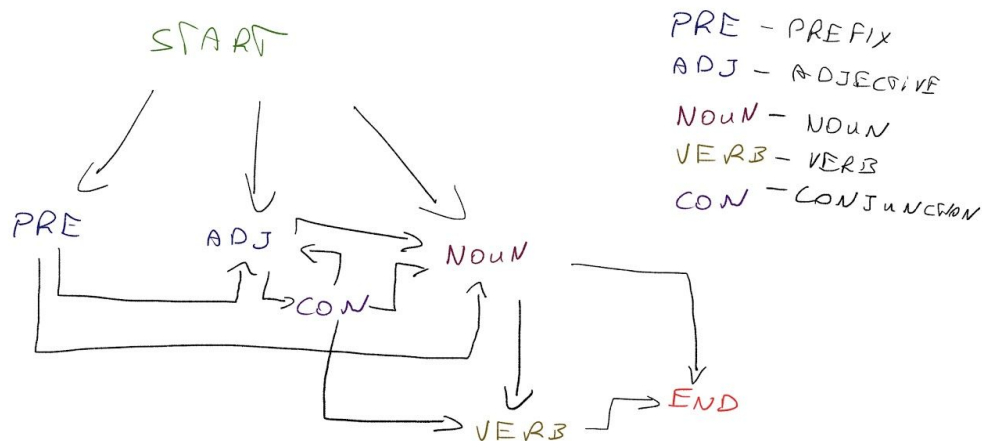 START
PRE
ADJ
NOUN
CON
VERB
END
PRE - PREFIX
ADJ - ADJECTIVE
NOUN - NOUN
VERB - VERB
CON - CONJUNCTION